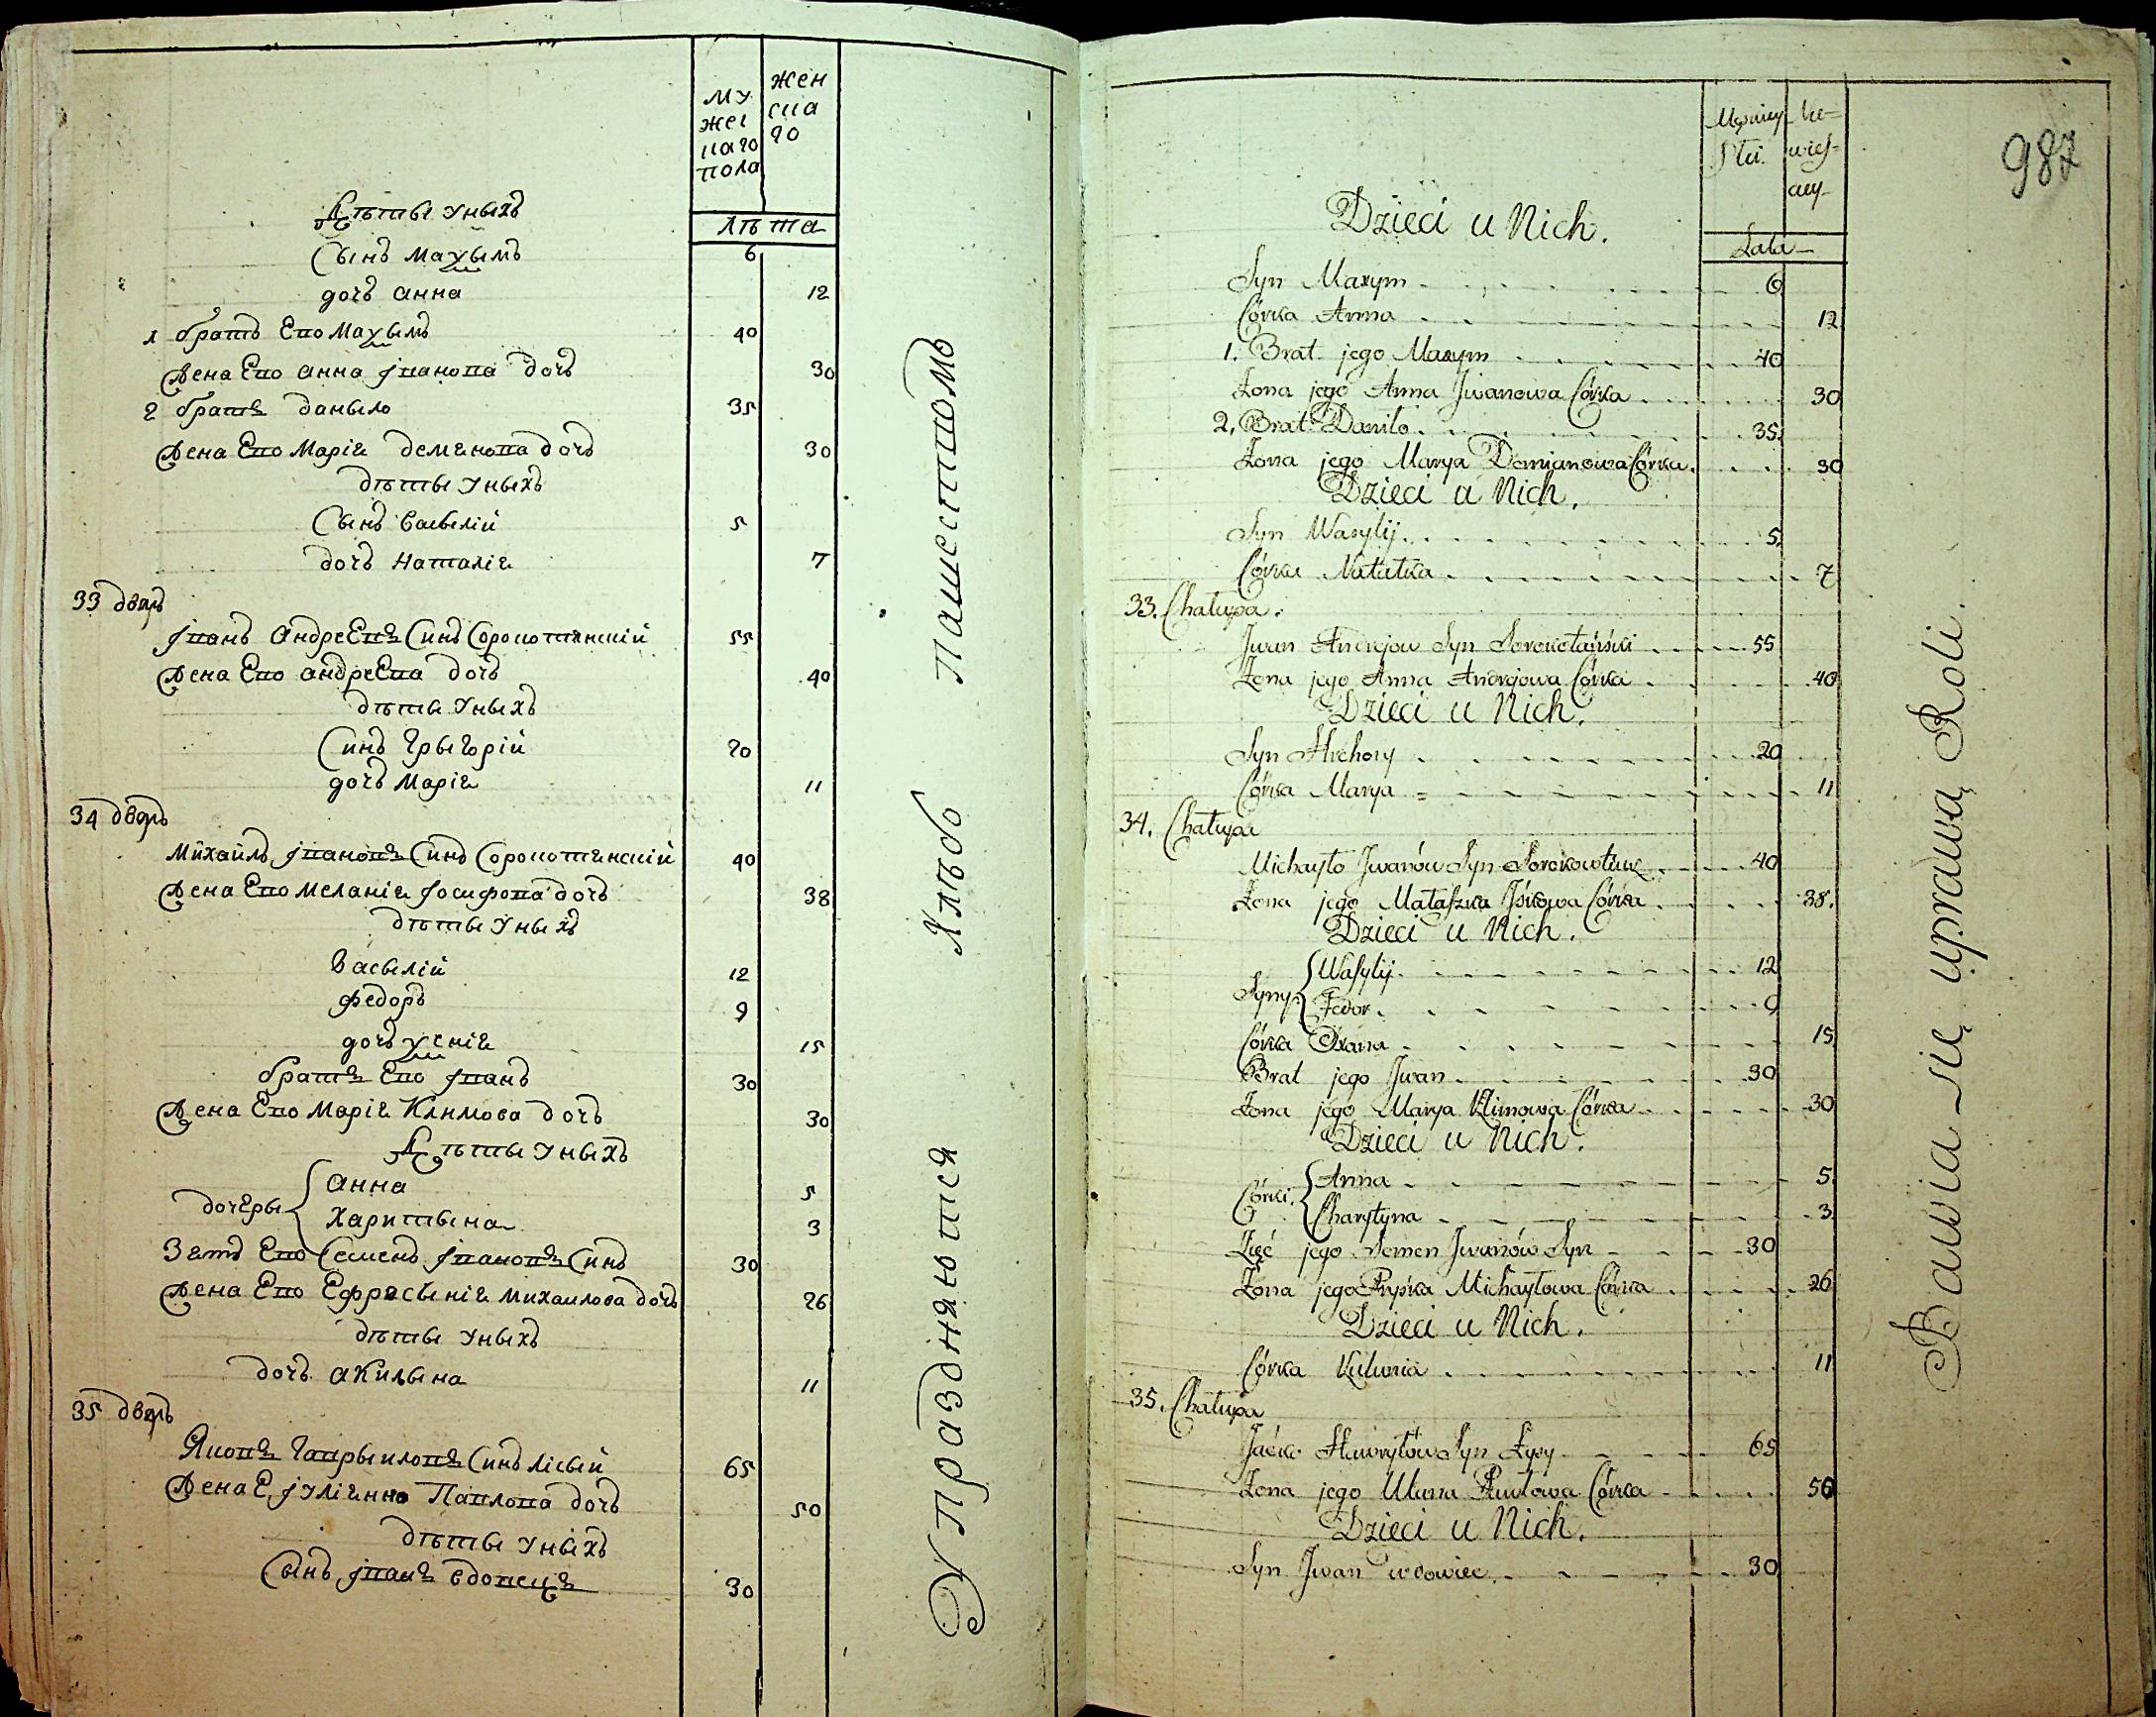 му
жес
каго
пола
жен
ска
го
лѣта
Дѣты уныхъ
Сынъ Махымъ 6
дочь анна 12
1 братъ Его Махымъ 40
Жена Его анна Іванова дочь 30
2 братъ даныло 35
Жена Его Маріѧ демѧнова дочь 30
дѣты уныхъ
Сынъ Васылій 5
дочь Наталіѧ 7
33 дворъ
Іванъ АндреЕвъ Синъ Сорокотѧнскій 55
Жена Его андреЕва дочь 40
дѣты уныхъ
Синъ Грыгорій 20
дочь Маріѧ 11
34 дворъ
Михаилъ Івановъ Синъ Сорокотѧнскій 40
Жена Его Меланіѧ Іосифова дочь 38
дѣты уныхъ
Васылій 12
Федоръ 9
дочь Ксеніѧ 15
братъ Его Іванъ 30
Жена Его Маріѧ Климова дочь 30
Дѣты уныхъ
дочеры
анна 5
Харитына 3
Зѧть Его Семенъ Івановъ Синъ 30
Жена Его Ефросыніѧ михаилова дочь 26
дѣты уныхъ
дочь акилына 11
35 дворъ
Яковъ Гаврыиловъ Синъ Лісый 65
Жена Е. Іуліѧнна Павлова дочь 50
дѣты уныхъ
Сынъ Іванъ вдовецъ 30
Упражняются Хлѣбо Пашествомъ
987
Męzkiey
Płci.
Nie-
wies-
ciey
Lata
Dzieci u Nich.
Syn Maxym 6
Córka Anna 12
1. Brat jego Maxym 40
Żona jego Anna Iwanowa Córka 30
2. Brat Daniło 35
Żona jego Marya Demianowa Córka 30
Dzieci u Nich.
Syn Wasylij 5
Córka Natałka 7
33. Chałupa.
Iwan Andrejow Syn Sorokotański 55
Żona jego Anna Andrejowa Córka 40
Dzieci u Nich.
Syn Hrehory 20
Córka Marya 11
34. Chałupa
Michayło Iwanów Syn 40
Żona jego Małaszka Iśkowa Córka 38.
Dzieci u Nich.
Syny
Wasylij 12
Fedor 9
Córka Oxana 15
Brat jego Iwan 30
Żona jego Marya Klimowa Córka 30
Dzieci u Nich.
Córki
Anna 5
Charytyna 3
Zięć jego Semen Iwanów Syn 30
Żona jego Pryśka Michayłowa Córka 26
Dzieci u Nich.
Córka Kulunia 11
35. Chałupa
Jaćko Hawryłów Syn Łysy 65
Żona jego Ulana Pawłowa Córka 50
Dzieci u Nich.
Syn Iwan wdowiec 30
Bawia się uprawą Roli.